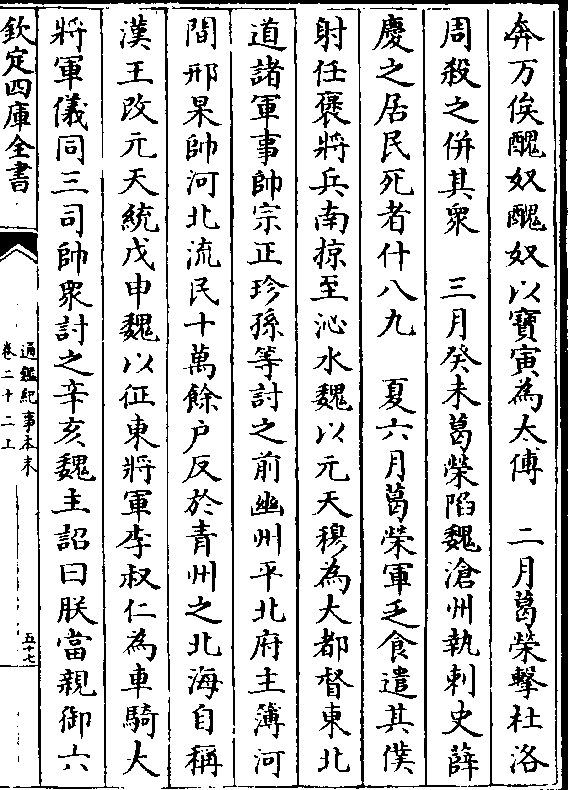 奔万俟醜奴醜奴以寶寅為太傅　二月葛榮擊杜洛
周殺之併其衆　三月癸未葛榮陷魏滄州執刺史薛
慶之居民死者什八九　夏六月葛榮軍乏食遣其僕
射任褒將兵南掠至沁水魏以元天穆為大都督東北
道諸軍事帥宗正珍孫等討之前幽州平北府主簿河
間邢杲帥河北流民十萬餘户反於青州之北海自稱
漢王改元天統戊申魏以征東將軍李叔仁為車騎大
將軍儀同三司帥衆討之辛亥魏主詔曰朕當親御六
欽定四庫全書
通鑑紀事本末
卷二十二上
五十七